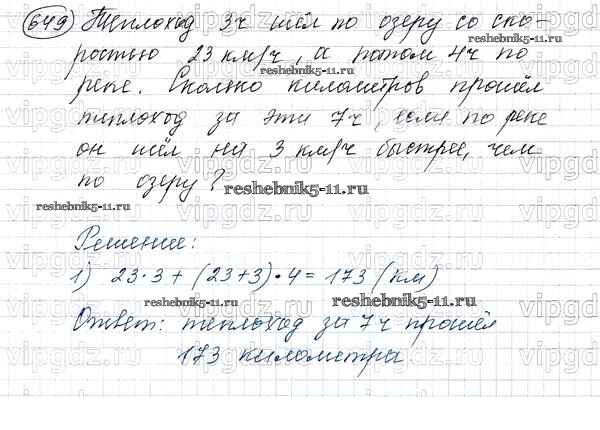 649 Теплоход 3ч шёл по озеру со ско-
ростью 23 км/ч, а потом 4ч по
реке. Сколько километров прошёл
теплоход за эти 7ч, если по реке
он шёл на 3 км/ч быстрее, чем
по озеру?
Решение:
1) 23·3 + (23+3)·4 = 173 (км)
Ответ: теплоход за 7ч прошёл
173 километра
reshebnik5-11.ru
reshebnik5-11.ru
reshebnik5-11.ru
reshebnik5-11.ru
reshebnik5-11.ru
reshebnik5-11.ru
vipgdz.ru